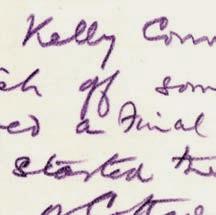 Kelly Conn
ch of som
ed a Final
started the